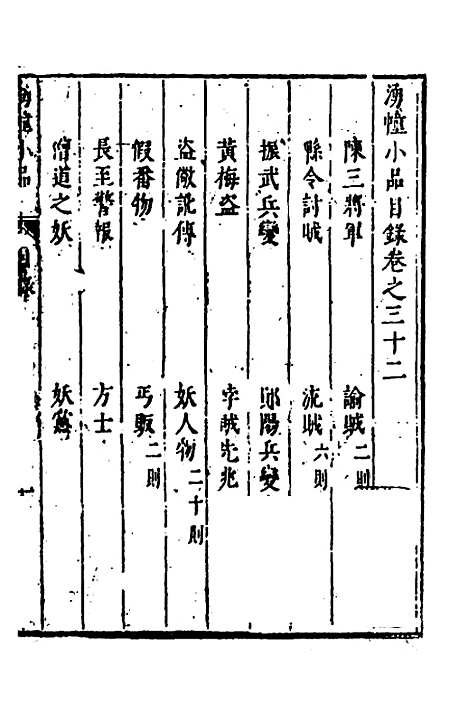 湧幢小品目錄卷之三十二
陳三將軍 諭賊二則
縣令討賊 流賊六則
振武兵變 鄖陽兵變
黃梅盜 李賊先兆
盜儆訛傳 妖人物二十則
假番物 丐販二則
長至警報 方士
僧道之妖 妖
湧幢小品 目錄 一